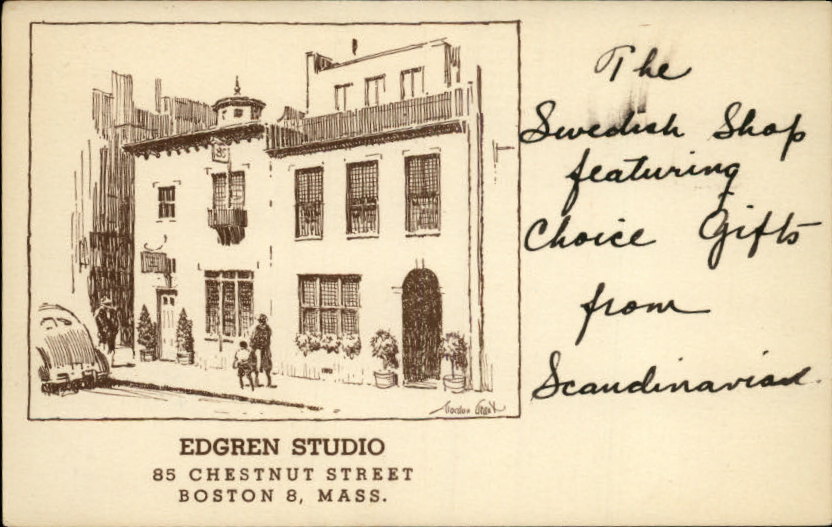 The
Swedish Shop
featuring
Choice Gifts
from
Scandinavian
Gordon Grant
EDGREN STUDIO
85 CHESTNUT STREET
BOSTON 8, MASS.